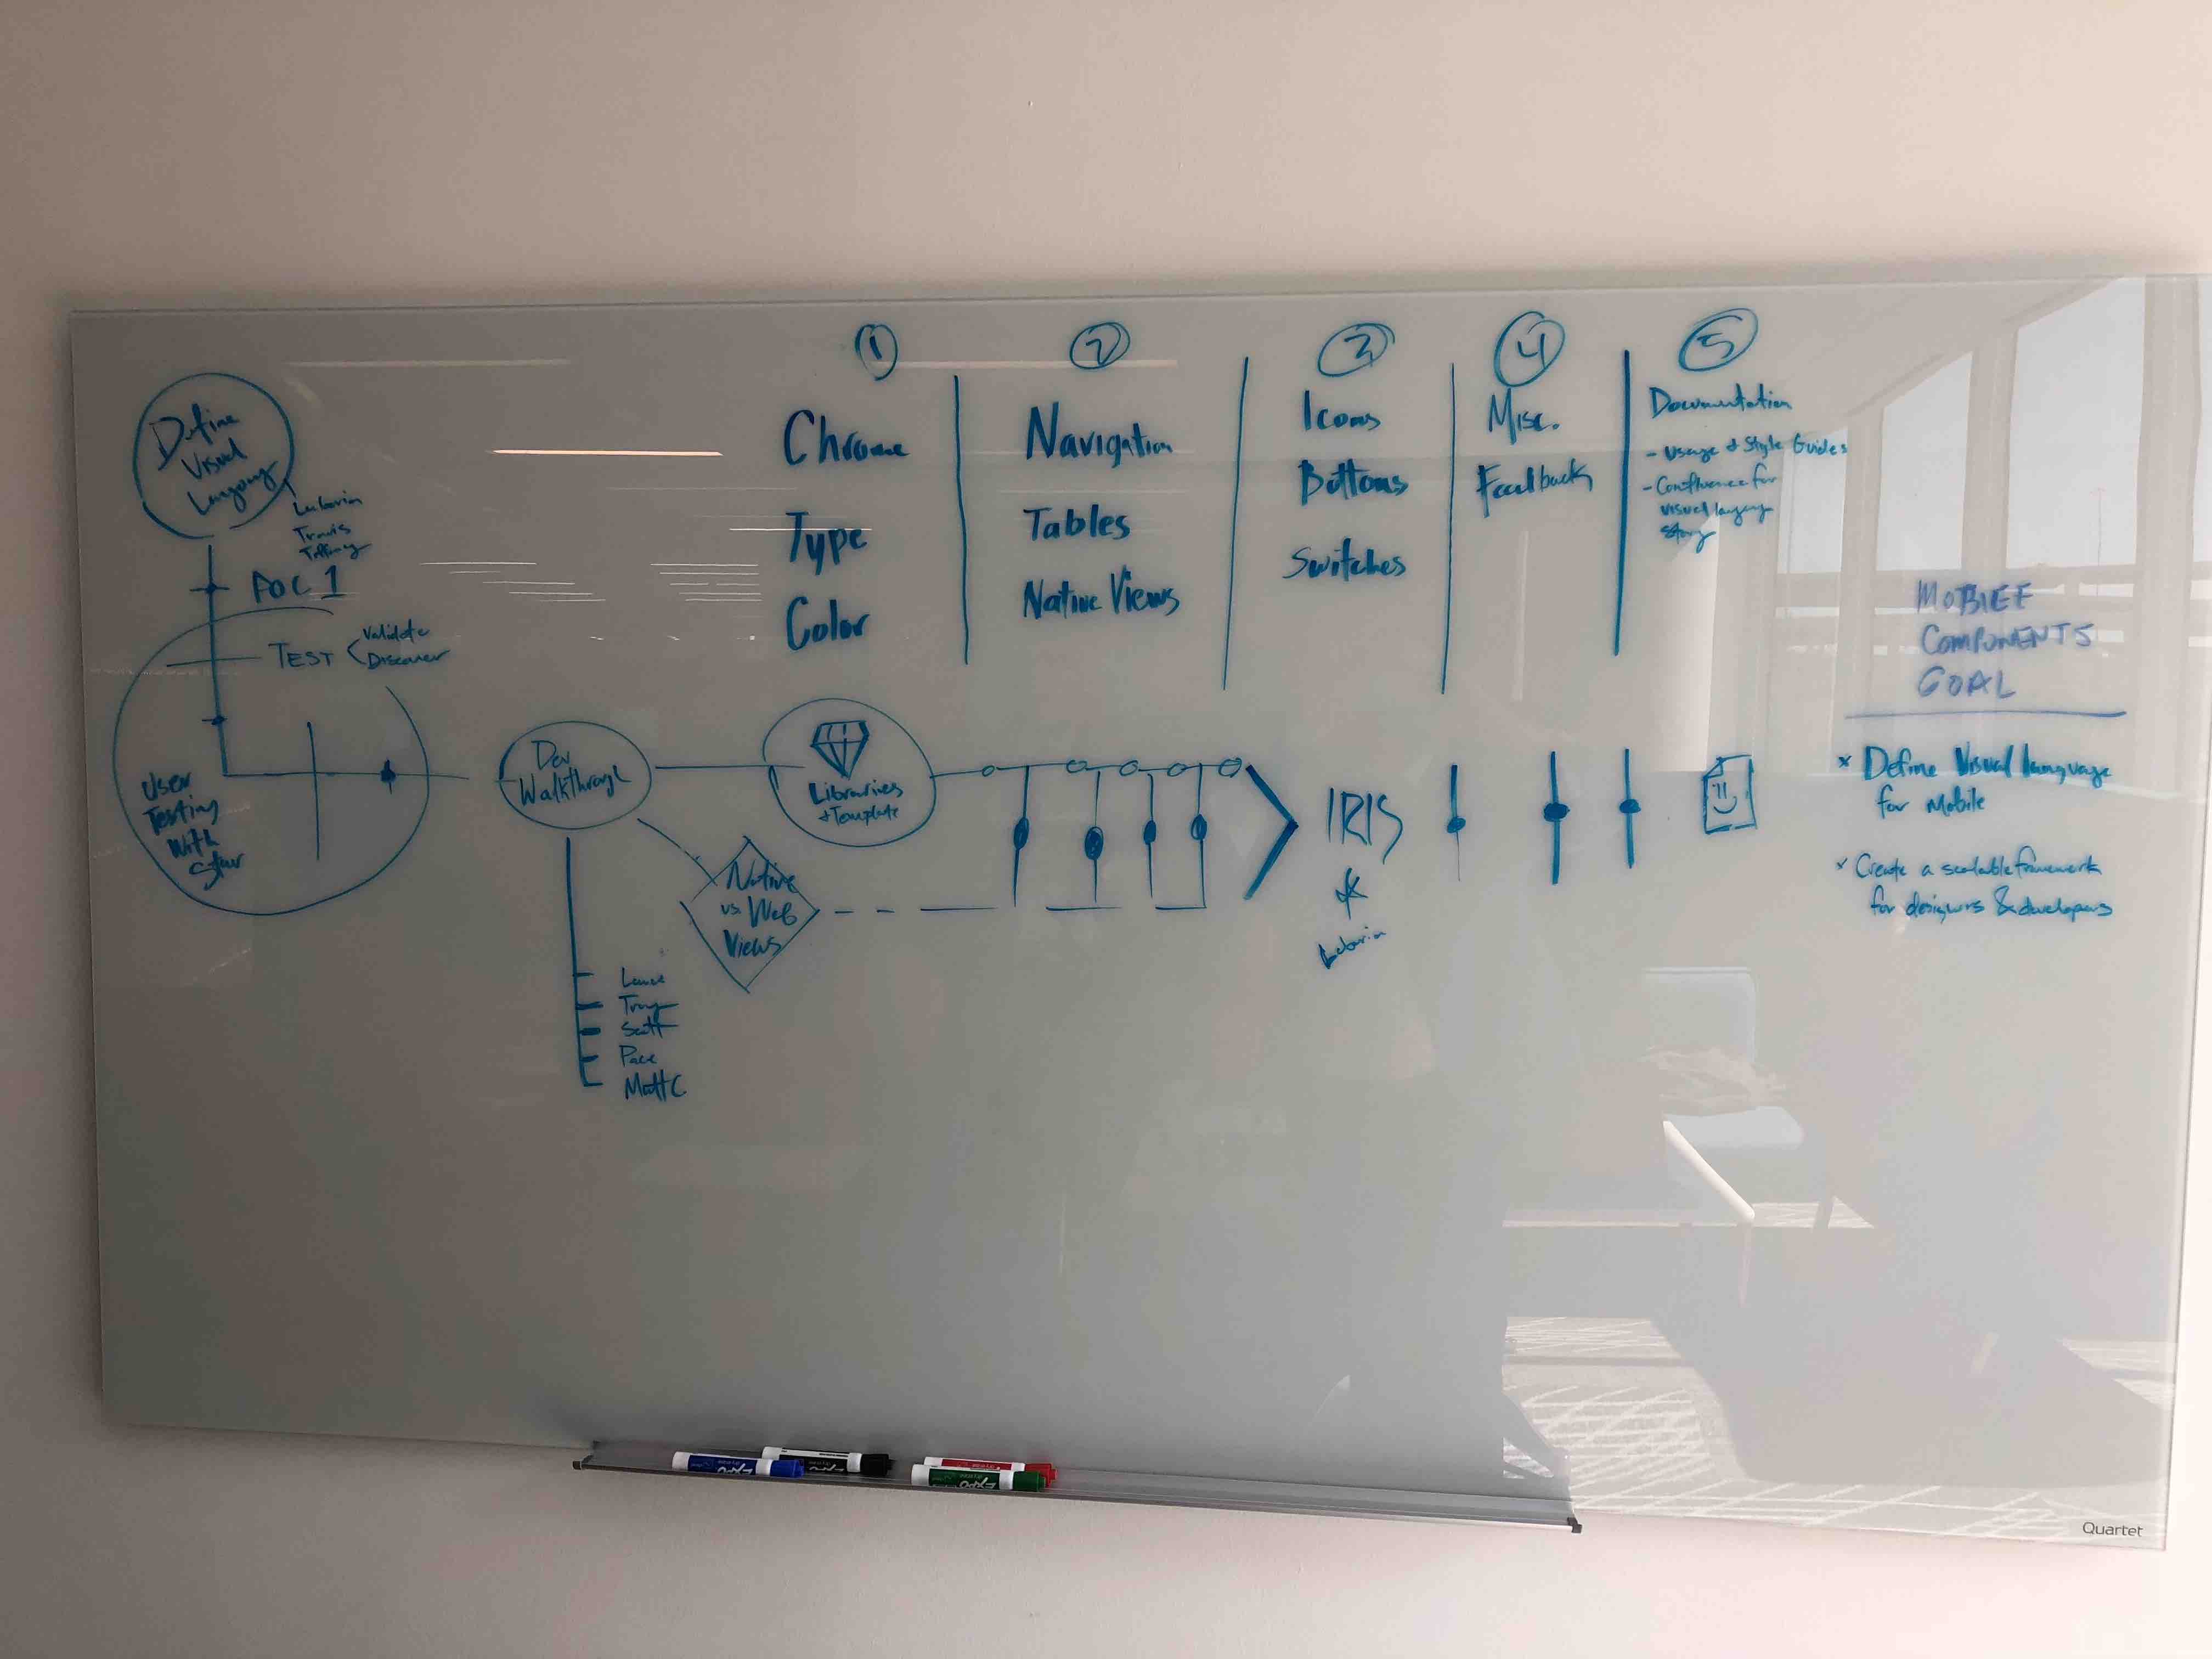 Define
Visual
Language
Travis
Tiffany
POC 1
TEST
Validate
Discover
User
Testing
With
Dev
Walkthrough
Scott
Pace
Matt C.
Native
vs. Web
Views
Libraries
+ Template
1
Chrome
Type
Color
2
Navigation
Tables
Native Views
3
Icons
Buttons
Switches
4
Misc.
Feedback
5
Documentation
- Usage & Style Guides
- Confluence for
visual language
story
IRIS
&
MOBILE
COMPONENTS
GOAL
x Define Visual language
for Mobile
x Create a scalable framework
for designers & developers
EXPO
EXPO
EXPO
Quartet